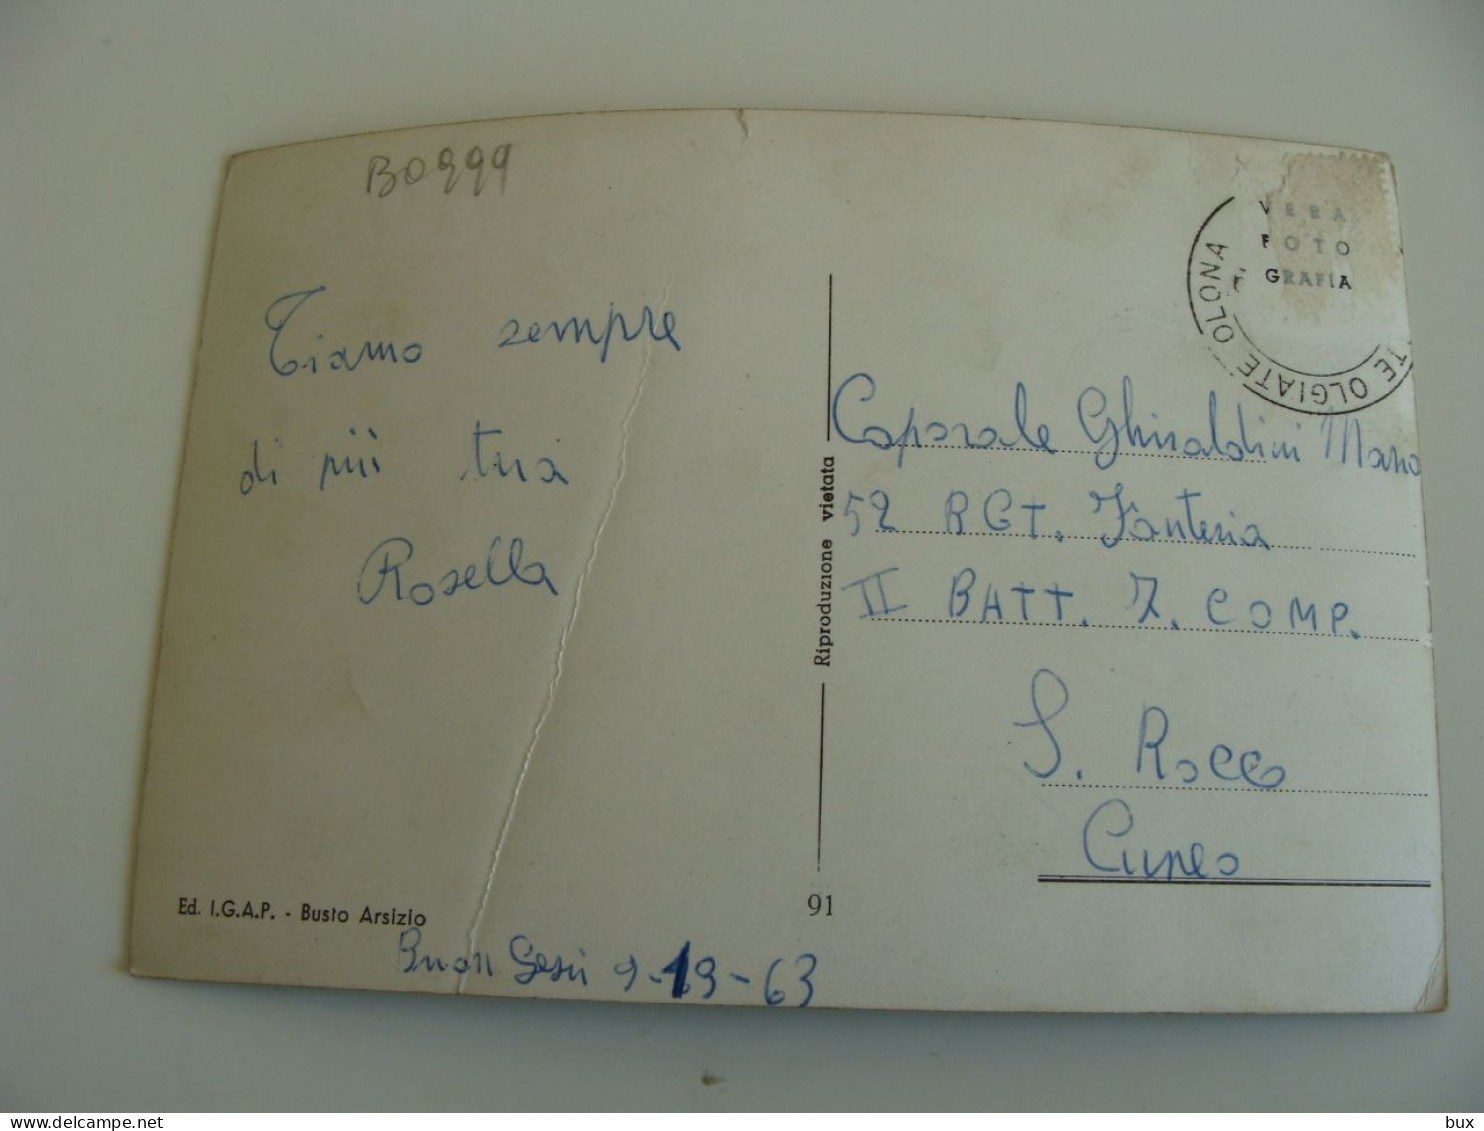 B0999
VERA
FOTO
GRAFIA
OLGIATE OLONA
Tiamo sempre
di più tua
Rosella
Caporale Ghiraldini Mario
52 RGT. Fanteria
II BATT. 7. COMP.
S. Rocco
Cuneo
Riproduzione vietata
91
Ed. I.G.A.P. - Busto Arsizio
Buon Gesù 9- -63
bux